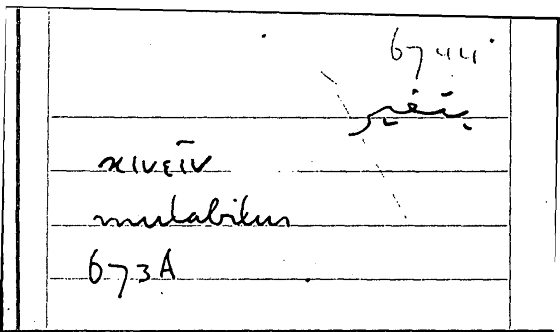 6744
بتغير
κινεῖν
mutabilur
673A